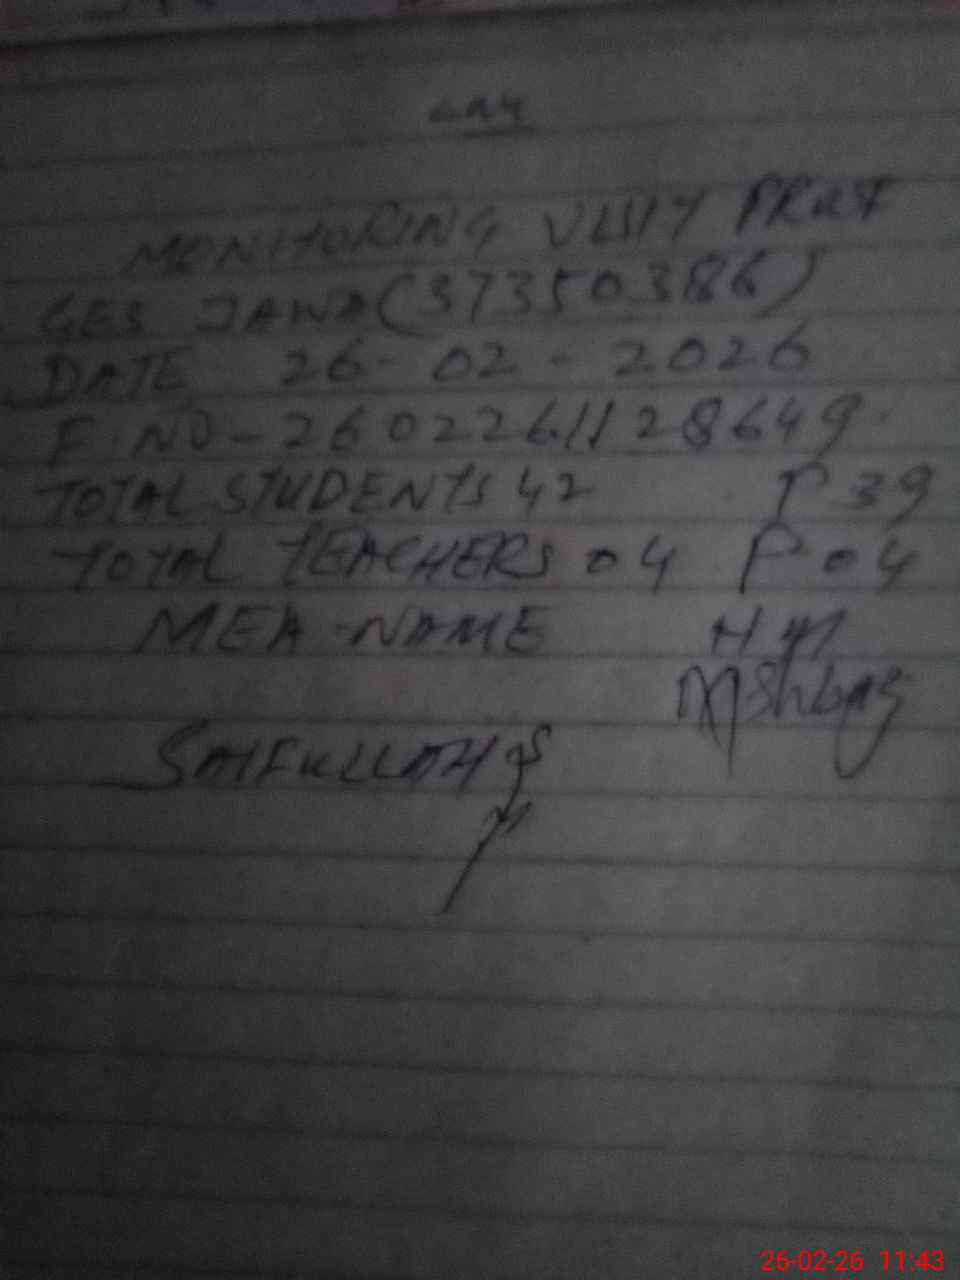 MONITORING VISIT PROF
GES JAWA (37350386)
DATE 26-02-2026
F NO-26022611128649
TOTAL STUDENTS 42 P 39
TOTAL TEACHERS 04 P 04
MEA NAME HM
SAIFULLAH
26-02-26 11:43